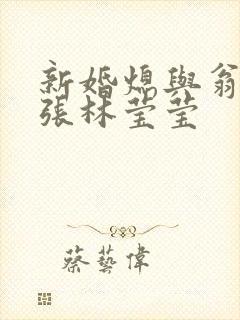 新婚媳與翁
張林莹莹
蔡藝偉